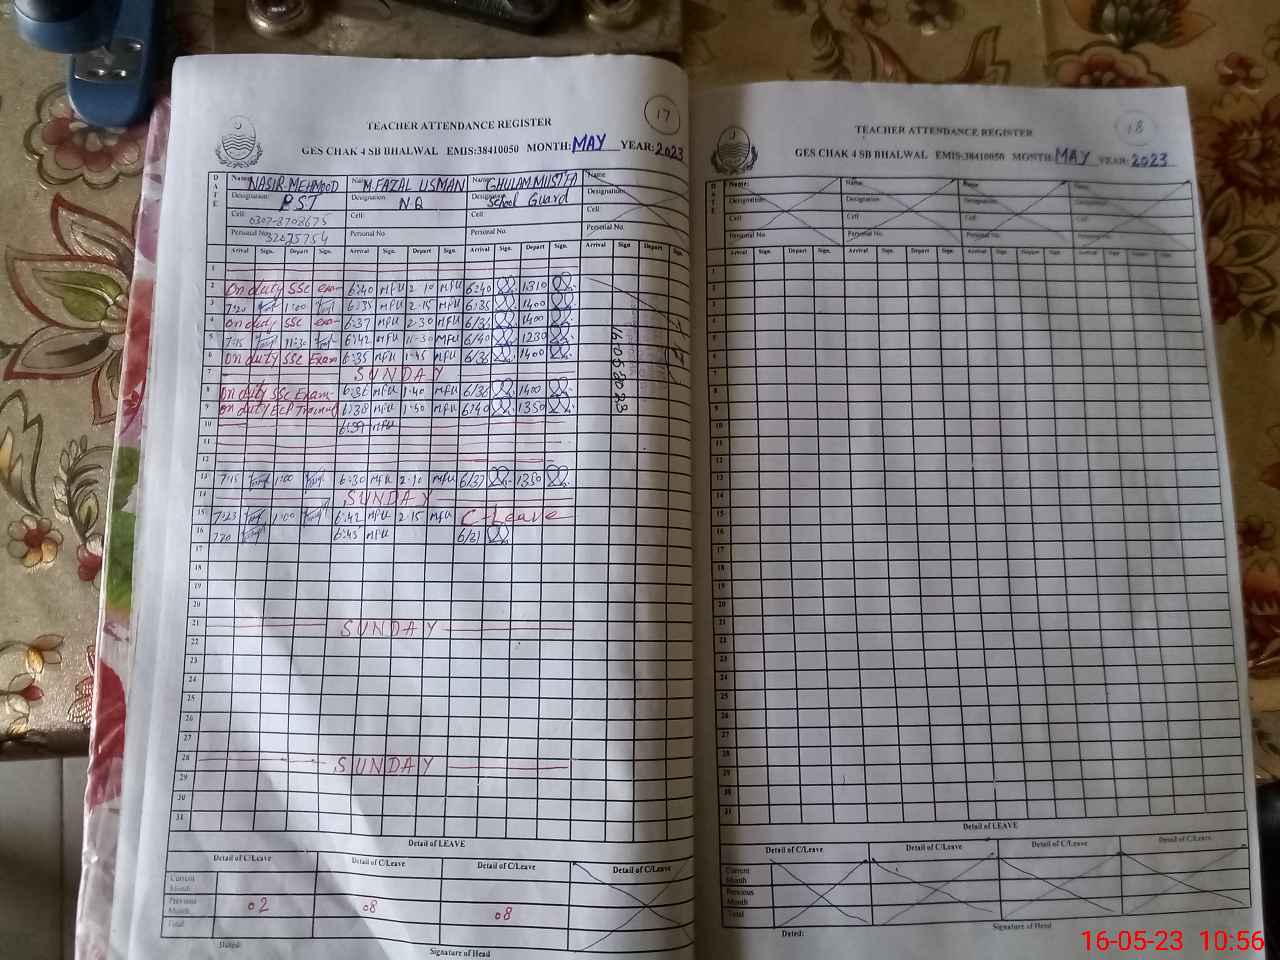 17
TEACHER ATTENDANCE REGISTER
GES CHAK 4 SB BHALWAL EMIS:38410050 MONTH: MAY YEAR: 2023
DATE
Name: NASIR MEHMOOD Name: M.FAZAL USMAN Name: GHULAM MUSTFA Name
Designation: PST Designation: N.Q Designation: School Guard Designation:
Cell: Cell: Cell: Cell
Personal No. Personal No. Personal No. Personal No.
Arrival Sign. Depart Sign. Arrival Sign. Depart Sign. Arrival Sign. Depart Sign. Arrival Sign. Depart Sign.
1
2 On duty SSC exam 6:40 MFU 2:10 MFU 6:40 1310
3 7:20 1:00 6:35 MFU 2:15 MFU 6:35 1400
4 On duty SSC exam 6:37 MFU 2:30 MFU 6/35 1400
5 7:15 11:30 6:42 MFU 11:30 MFU 6/40 1230
6 On duty SSC Exam 6:35 MFU 1:45 MFU 6/35 1400
7 SUNDAY
8 On duty SSC Exam 6:36 MFU 1:40 MFU 6/36 1400
9 On duty ECP Training 6:38 MFU 1:50 MFU 6:40 1350
10 6:39 MFU
11
12
13 7:15 1:00 6:30 MFU 2:10 MFU 6/37 1350
14 SUNDAY
15 7:23 1:00 6:42 MFU 2:15 MFU C-Leave
16 7:20 6:45 MFU 6/21
17
18
19
20
21 SUNDAY
22
23
24
25
26
27
28 SUNDAY
29
30
31
16-05-2023
Detail of LEAVE
Detail of C/Leave Detail of C/Leave Detail of C/Leave Detail of C/Leave
Current Month
Previous Month 02 08 08
Total
Dated: Signature of Head
18
TEACHER ATTENDANCE REGISTER
GES CHAK 4 SB BHALWAL EMIS:38410050 MONTH: MAY YEAR: 2023
DATE
Name: Name Name Name
Designation: Designation: Designation: Designation:
Cell Cell: Cell: Cell:
Personal No. Personal No. Personal No. Personal No.
Arrival Sign. Depart Sign. Arrival Sign. Depart Sign. Arrival Sign. Depart Sign. Arrival Sign. Depart Sign.
1
2
3
4
5
6
7
8
9
10
11
12
13
14
15
16
17
18
19
20
21
22
23
24
25
26
27
28
29
30
31
Detail of LEAVE
Detail of C/Leave Detail of C/Leave Detail of C/Leave Detail of C/Leave
Current Month
Previous Month
Total
Dated: Signature of Head
16-05-23 10:56